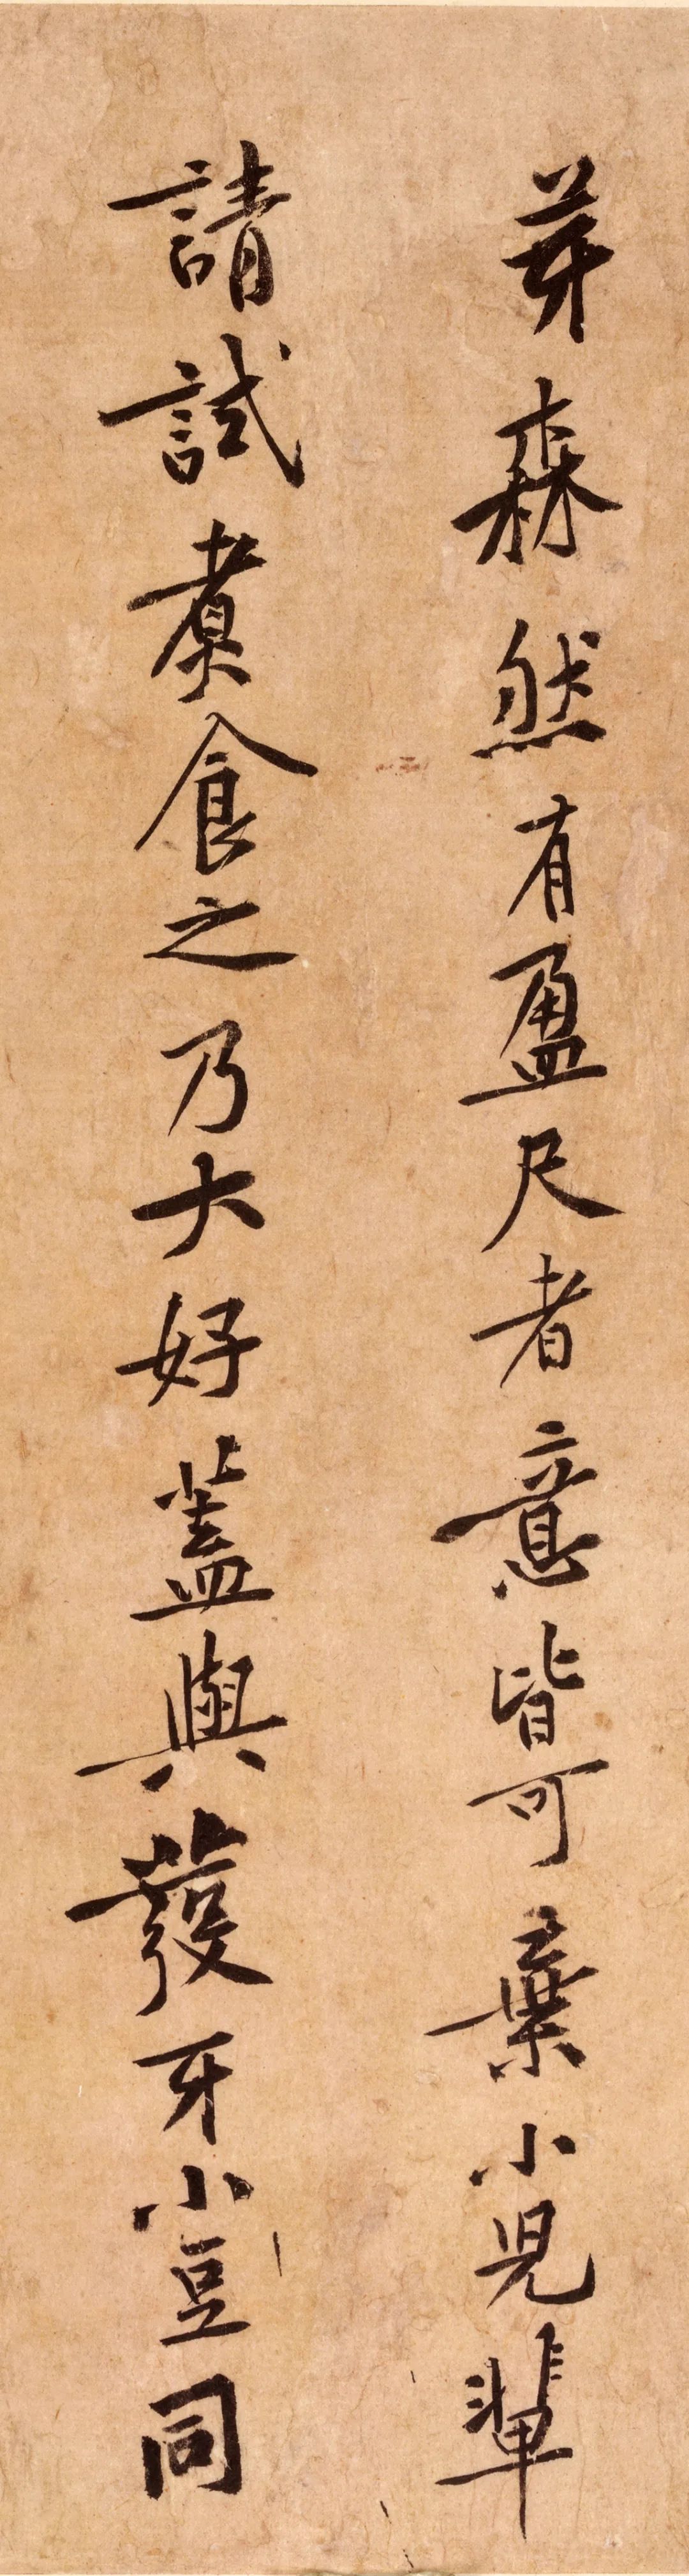 芽森然有盈尺者意皆可棄小兒輩
請試煮食之乃大好蓋與發牙小豆同